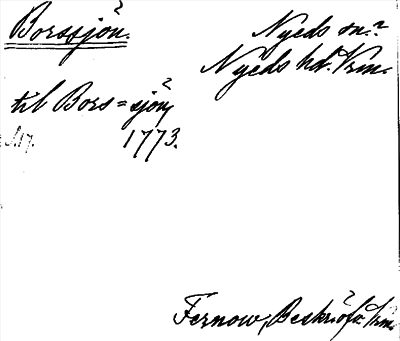 Borssjön.
Nyeds sn.?
Nyeds hd. Vrm.
til Bors=sjön,
S. 17.
1773.
Fernow, Beskrifn. ö. Vrm.